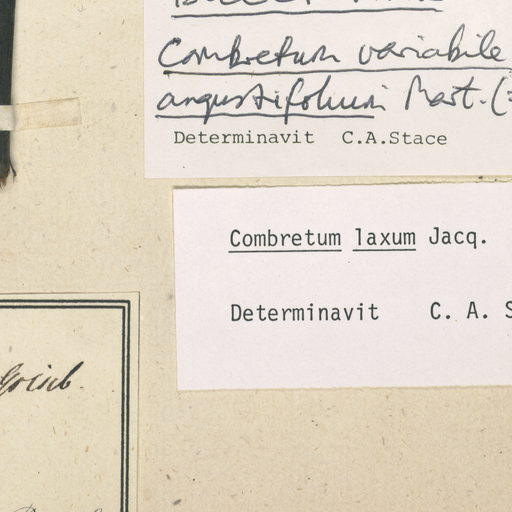 Combretum variabile
angustifolium Mart. (=
Determinavit C.A.Stace
Combretum laxum Jacq.
Determinavit C. A. S